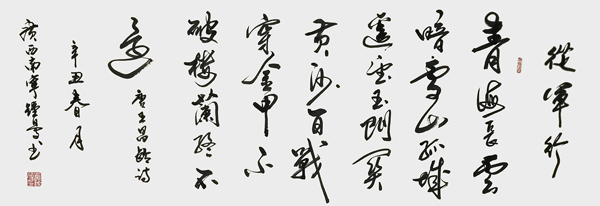 從軍行
青海長雲
暗雪山孤城
遥望玉門關
黄沙百戰
穿金甲不
破樓蘭終不
還
唐王昌齡诗
辛丑春月
廣西南寧书